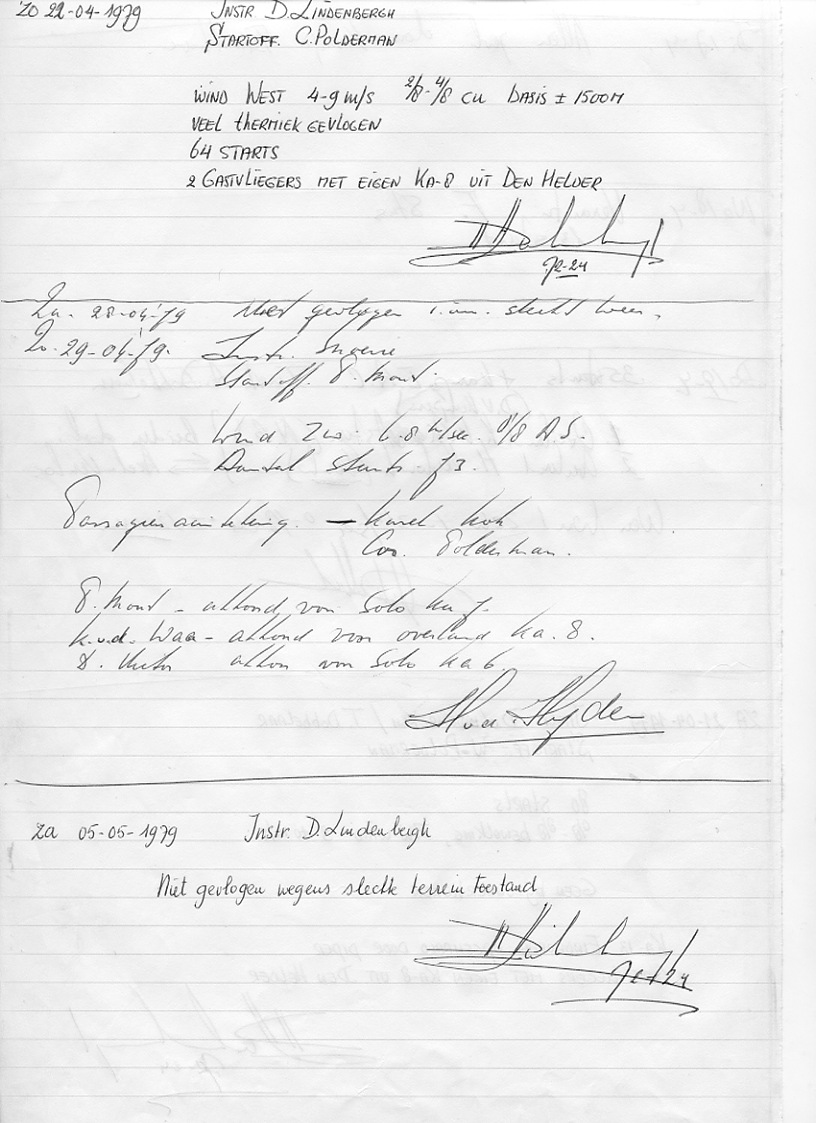 ZO 22-04-1979 INSTR D. LINDENBERGH
STARTOFF. C. POLDERMAN
WIND WEST 4-9 m/s 2/8-4/8 cu basis ± 1500M
VEEL thermiek GEVLOGEN
64 STARTS
2 GASTVLIEGERS MET EIGEN KA-8 UIT DEN HELDER
Za. 28-04-'79 Niet gevlogen i.v.m. slecht weer.
Zo. 29-04-'79. Instr.
Startoff. P. Mond.
Wind ZW. 6-8 m/sec. 8/8 AS.
Aantal starts. 73.
Passagiersaantekening. — Karel Kok
Cor. Polderman.
P. Mond - akkoord voor Solo Ka 7.
K.v.d. Waa - akkoord voor overland Ka. 8.
akkoo voor Solo Ka 6.
Za 05-05-1979 Instr. D. Lindenbergh
Niet gevlogen wegens slechte terrein toestand